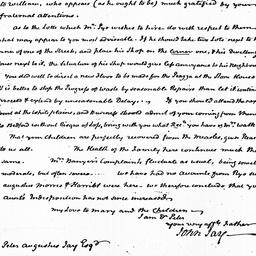 to William, who appears (as he ought to be) much gratified by your
fraternal attentions.
As to the Lott which Mr. Pye wishes to hire do with respect to them
what may appear to you most adviseable. If he should take two Lots next to the
one of the Street, and place his Shop on the Corner one, & his Dwelling
House next to it, the situation of his Shop would give Conveyance to his Neighbors
You did well to direct a new Sluice to be made for the at the Stone House
It is better to stop the Progress of Waste by seasonable Repairs than let it continue
and by unseasonable Delays. If you should attend the
at the White plains, and should admit of your coming from thence
to Bedford without danger of , bring with you what you have of Mr.
That your children are perfectly recovered from the Measles, gives Pleasure
to us all. The Health of the Family here continues much the
same. Mrs. Banyer's Complaints fluctuate as usual, being sometimes
moderate, but often severe. We have had no accounts from Rye since
Augustus Morris & Harriet were here. We therefore conclude that your
Aunts Indisposition has not since increased.
My Love to Mary and the Children
I am Dr. Peter
Your very affte. Father
John Jay
Peter Augustus Jay Esqr.